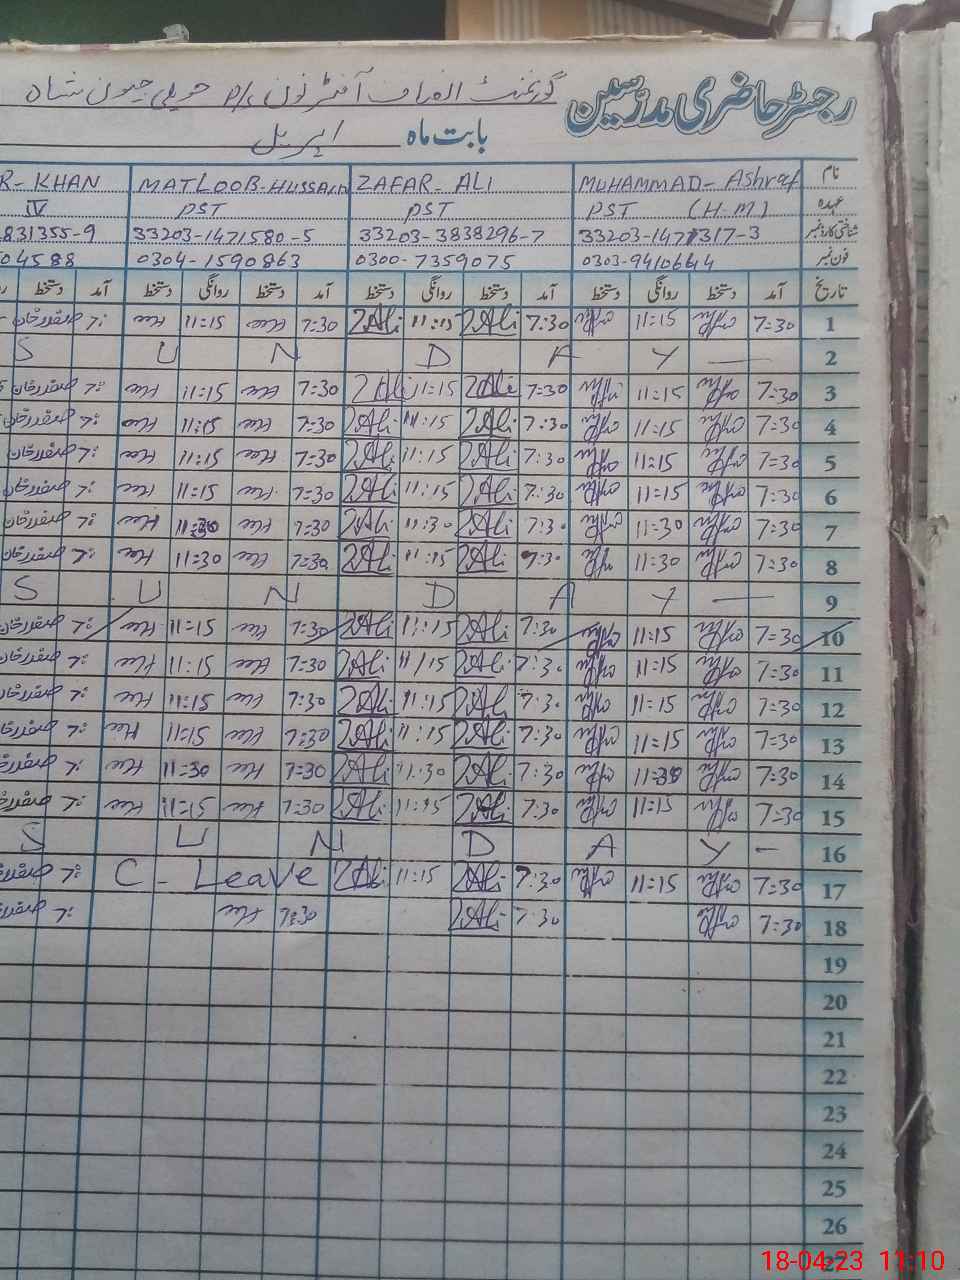 رجسٹر حاضری مدرسین گورنمنٹ الصاف آفٹرنون p/s حویلی جیون شاہ
بابت ماہ اپریل
نام MUHAMMAD-Ashraf ZAFAR-ALI MATLOOB-HUSSAIN R-KHAN
عہدہ PST (H.M) PST PST IV
شناختی کارڈ نمبر 33203-1471317-3 33203-3838296-7 33203-1471580-5 831355-9
فون نمبر 0303-9410644 0300-7359075 0304-1590863 04588
تاریخ آمد دستخط روانگی دستخط آمد دستخط روانگی دستخط آمد دستخط روانگی دستخط آمد دستخط
1 7=30 11=15 7:30 ZAli 11:15 ZAli 7=30 11=15 صفدرخان
2 S U N D A Y
3 7=30 11=15 7=30 ZAli 11:15 ZAli 7=30 11=15 صفدرخان
4 7=30 11=15 7:30 ZAli 11:15 ZAli 7=30 11=15 صفدرخان
5 7=30 11=15 7:30 ZAli 11:15 ZAli 7=30 11=15 صفدرخان
6 7=30 11=15 7:30 ZAli 11:15 ZAli 7=30 11=15 صفدرخان
7 7=30 11=30 7:30 ZAli 11:30 ZAli 7=30 11=30 صفدرخان
8 7=30 11=30 7:30 ZAli 11:15 ZAli 7=30 11=30 صفدرخان
9 S U N D A Y
10 7=30 11=15 7:30 ZAli 11:15 ZAli 7=30 11=15 صفدرخان
11 7=30 11=15 7:30 ZAli 11/15 ZAli 7=30 11=15 صفدرخان
12 7=30 11=15 7:30 ZAli 11:15 ZAli 7=30 11=15 صفدرخان
13 7=30 11=15 7:30 ZAli 11:15 ZAli 7=30 11=15 صفدرخان
14 7=30 11=30 7:30 ZAli 11:30 ZAli 7=30 11=30 صفدر
15 7=30 11=15 7:30 ZAli 11:15 ZAli 7=30 11=15 صفدرخان
16 S U N D A Y
17 7=30 11=15 7:30 ZAli 11:15 ZAli C-Leave صفدر
18 7=30 7:30 ZAli 7=30 صفدر
19
20
21
22
23
24
25
26
27
18-04-23 11:10